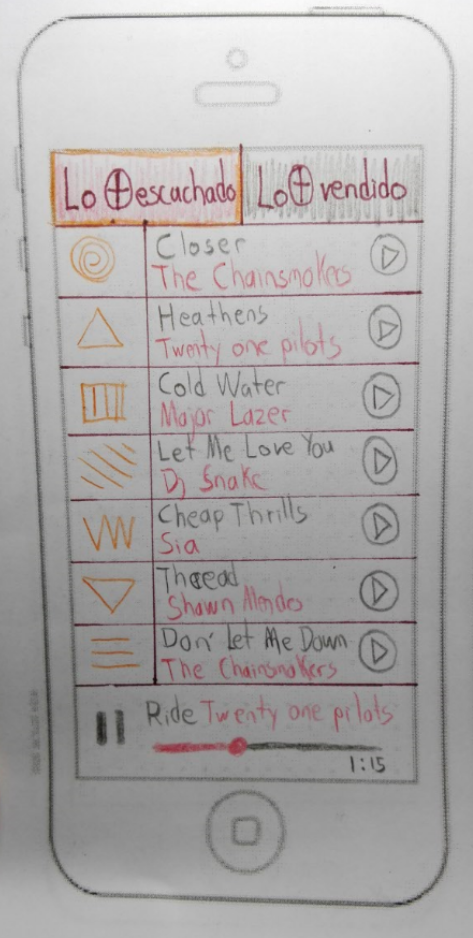 Lo + escachado
Lo + vendido
Closer
The Chainsmokers
Heathens
Twenty one pilots
Cold Water
Major Lazer
Let Me Love You
Dj Snake
Cheap Thrills
Sia
Thread
Shawn Mendes
Don' Let Me Down
The Chainsmokers
Ride Twenty one pilots
1:15